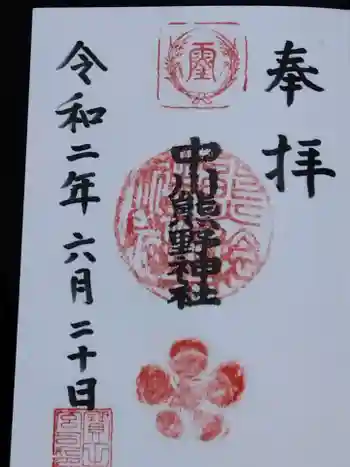 奉拝
中川熊野神社
令和二年六月二十日